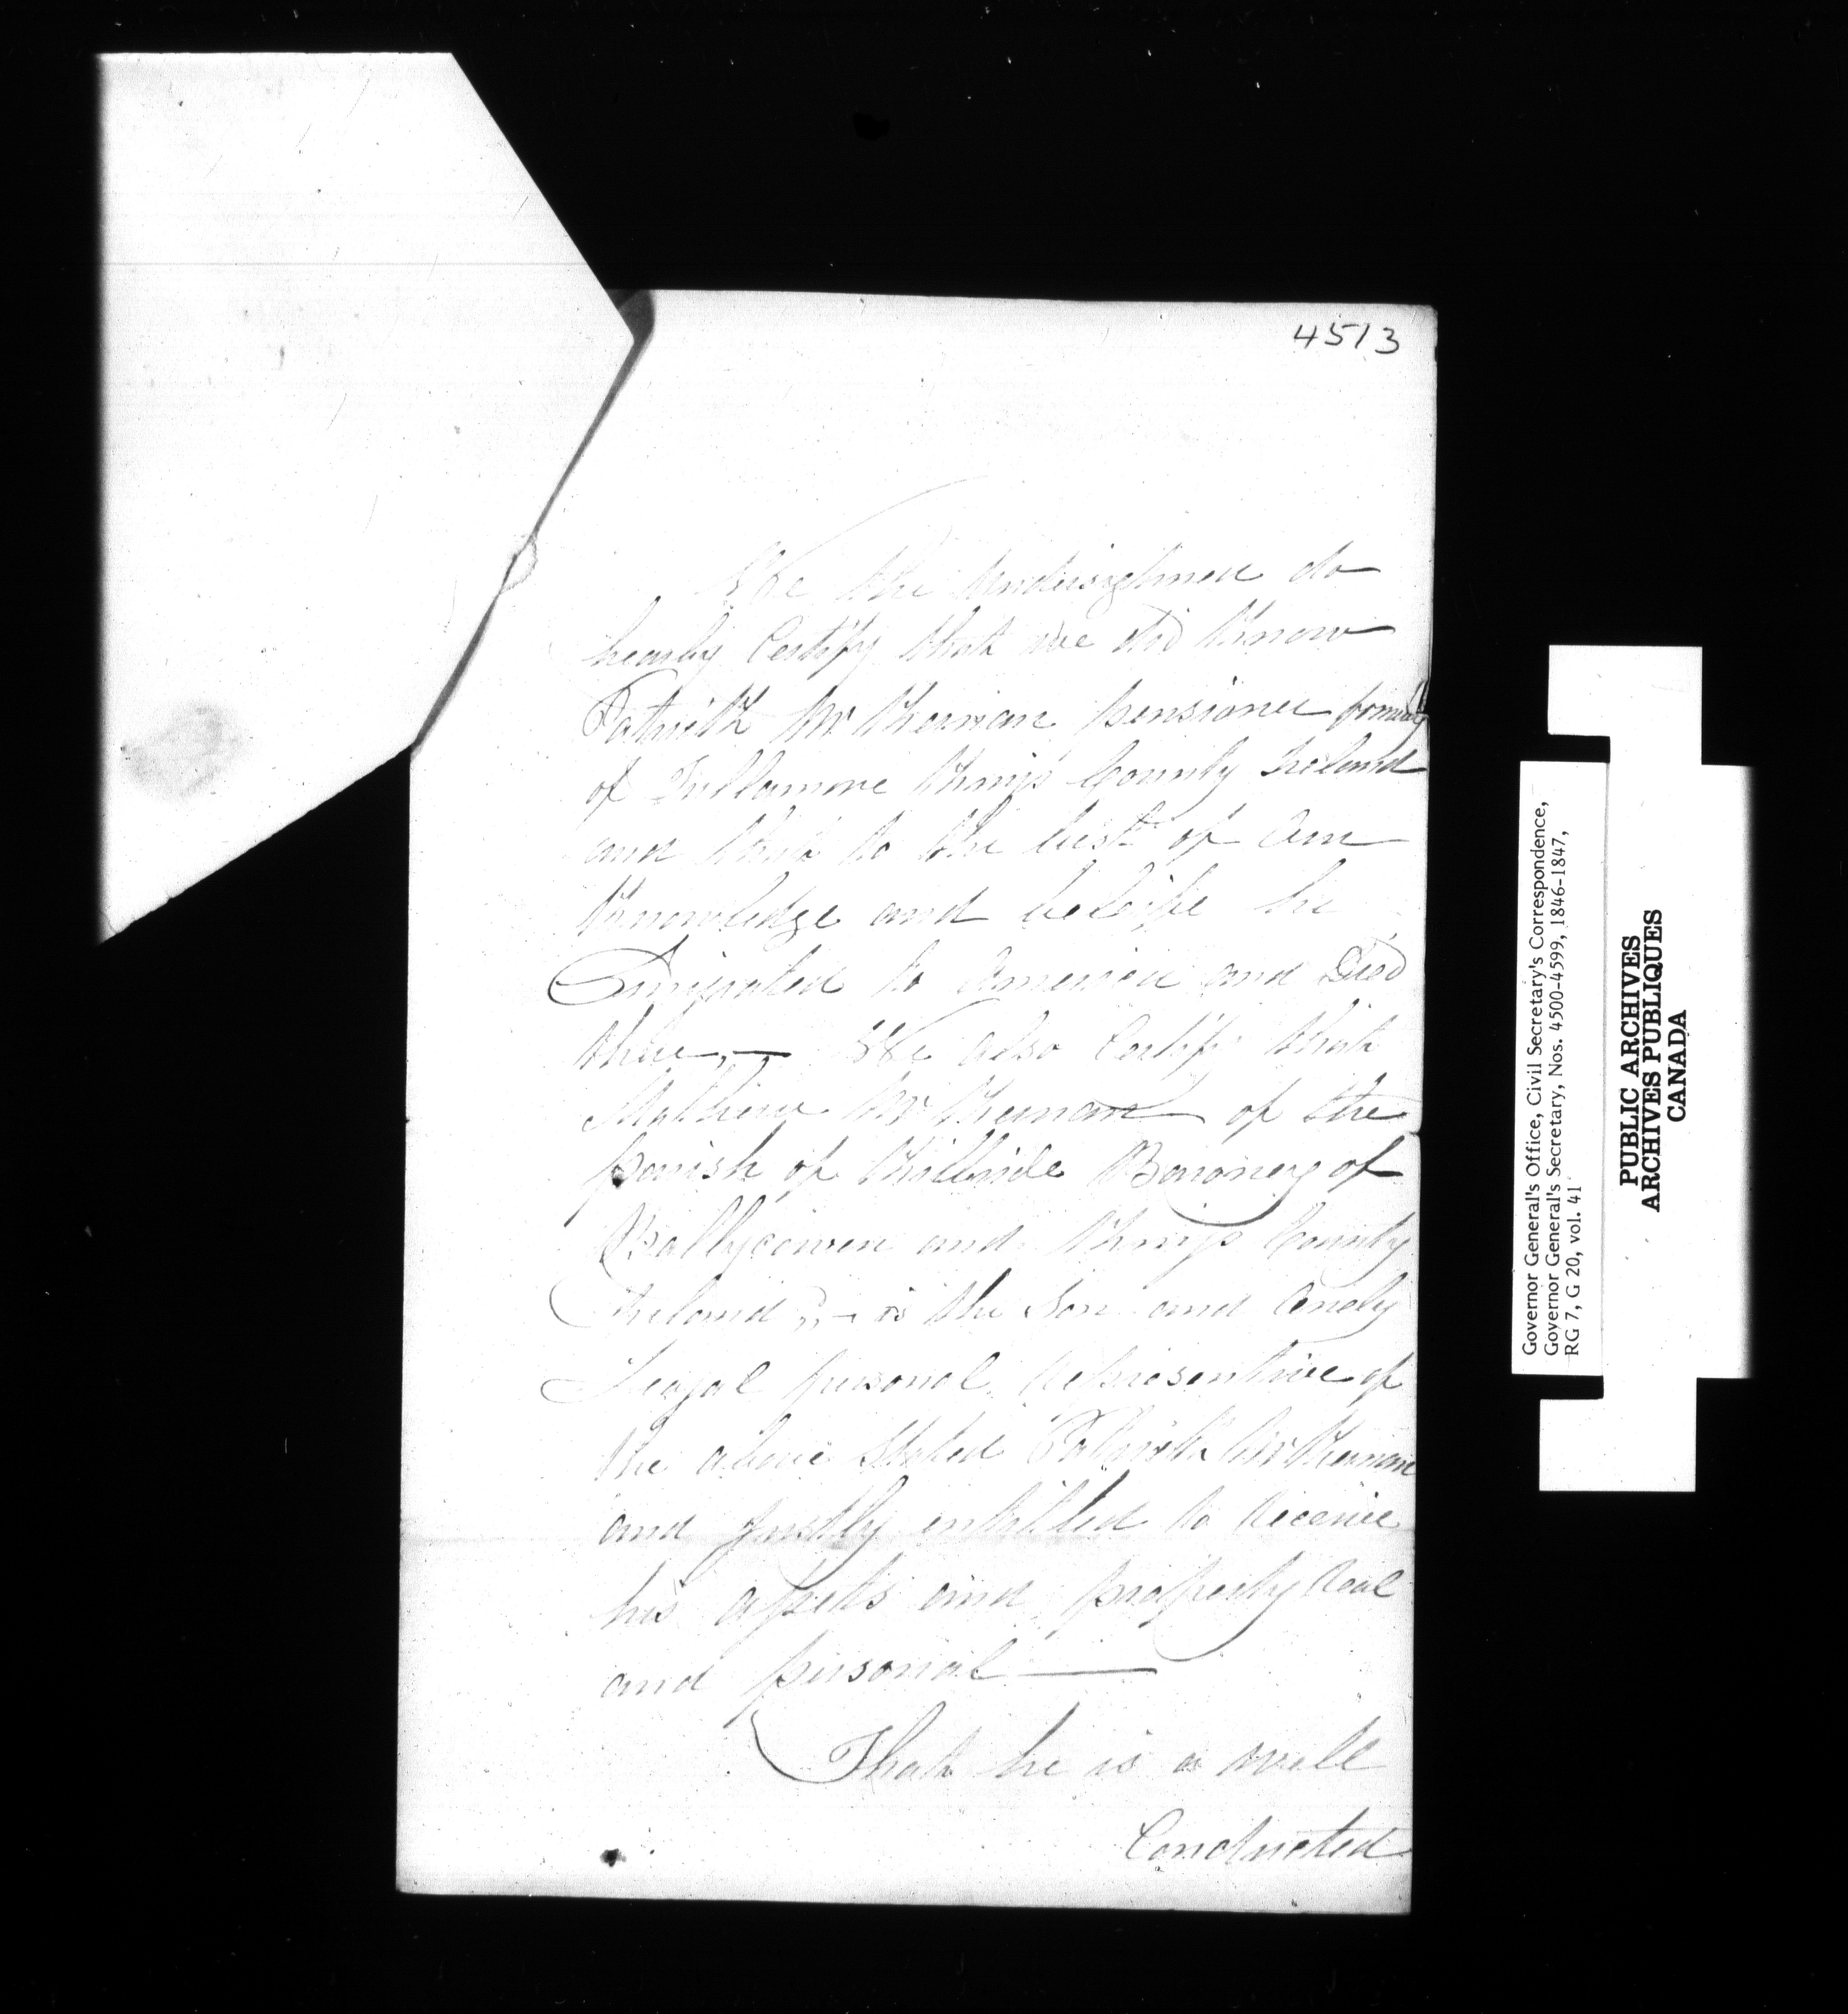 4513
We the undersighned do
hearby Certify that we did Know
Patrick McKiernan pensioner formerly
of Tullamore Kings County Ireland
and that to the best of Our
Knowledge and beleife he
Emigrated to America and Died
there,— We also Certify that
Mathew McKiernan of the
parish of Killbride Baroney of
Ballycowen and Kings County
Ireland,,— is the Son and Ondly
Leagal personal representive of
the above Stated Patrick McKiernan
and justly entitled to receive
his affects and property real
and personal—
That he is a well
Conducted
Governor General's Office, Civil Secretary's Correspondence,
Governor General's Secretary, Nos. 4500-4599, 1846-1847,
RG 7, G 20, vol. 41
PUBLIC ARCHIVES
ARCHIVES PUBLIQUES
CANADA